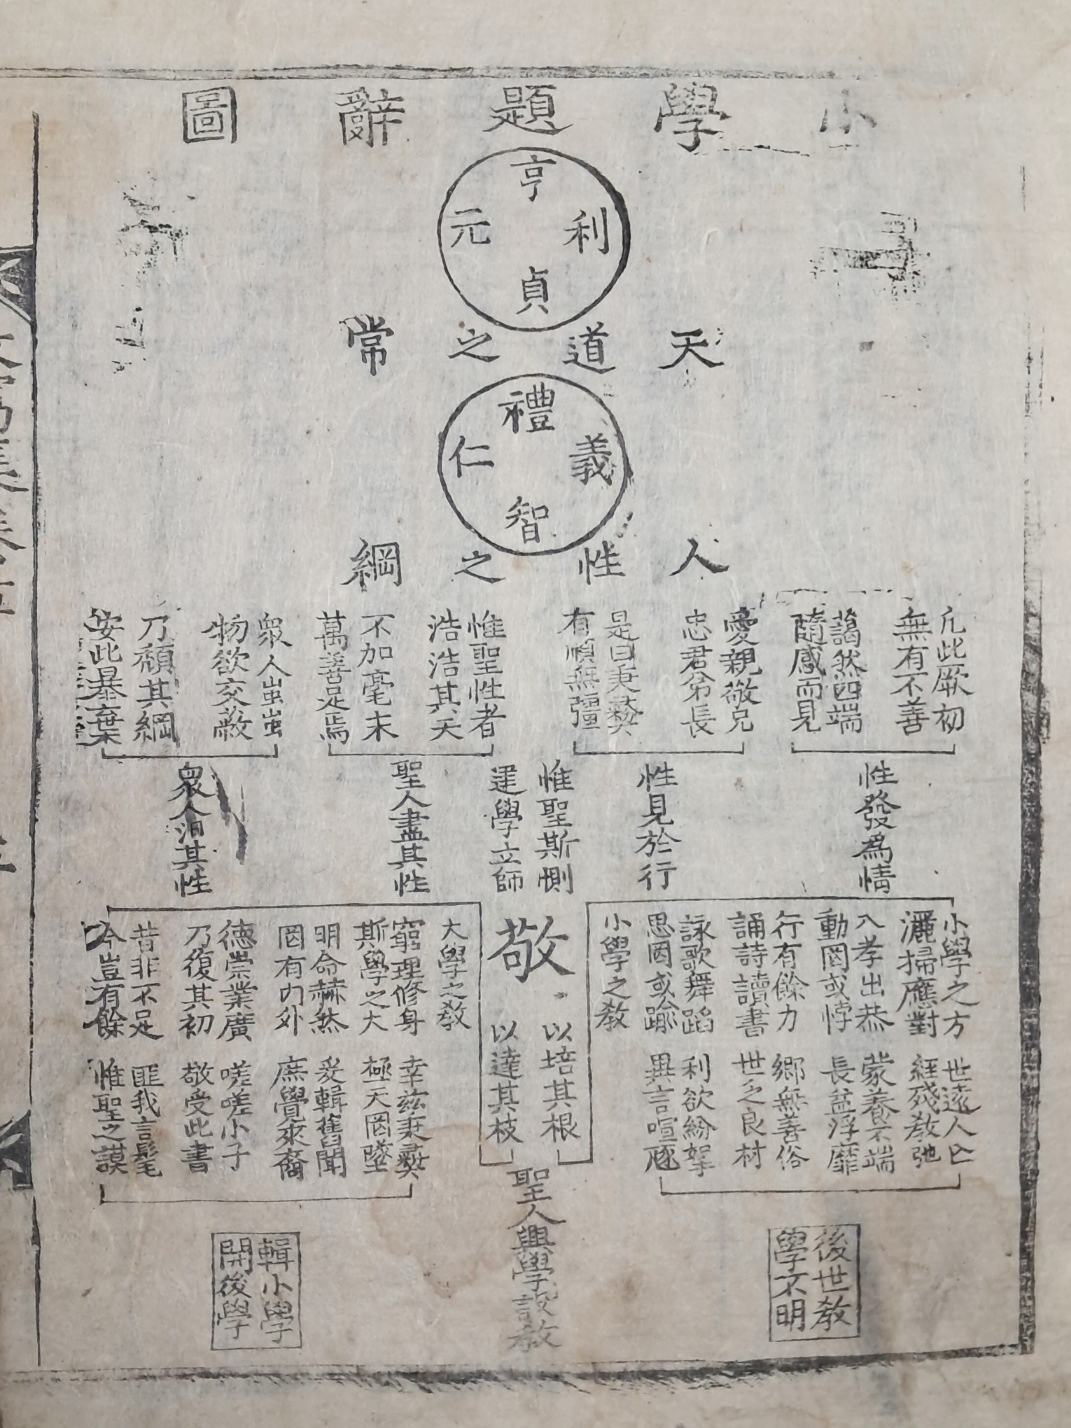 小學題辭圖
亨
利
元
貞
天道之常
禮
義
仁
智
人性之綱
凡此厥初
無有不善
藹然四端
隨感而見
愛親敬兄
忠君弟長
是曰秉彝
有順無彊
惟聖性者
浩浩其天
不加毫末
萬善足焉
眾人蚩蚩
物欲交蔽
乃頹其綱
安此暴棄
性發爲情
性見於行
惟聖斯惻
建學立師
聖人盡其性
眾人汨其性
小學之方
灑掃應對
入孝出恭
動罔或悖
行有餘力
誦詩讀書
詠歌舞蹈
思罔或踰
小學之教
敬
以培其根
以達其枝
大學之教
窮理修身
斯學之大
明命赫然
罔有內外
德崇業廣
乃復其初
昔非不足
今豈有餘
世遠人亡
經殘教弛
蒙養不端
長益浮靡
鄉無善俗
世乏良材
利欲紛挐
異言喧豗
幸茲秉彝
極天罔墜
爰輯舊聞
庶覺來裔
嗟嗟小子
敬受此書
匪我言髦
惟聖之謨
聖人興學設教
後世教
學不明
輯小學
開後學